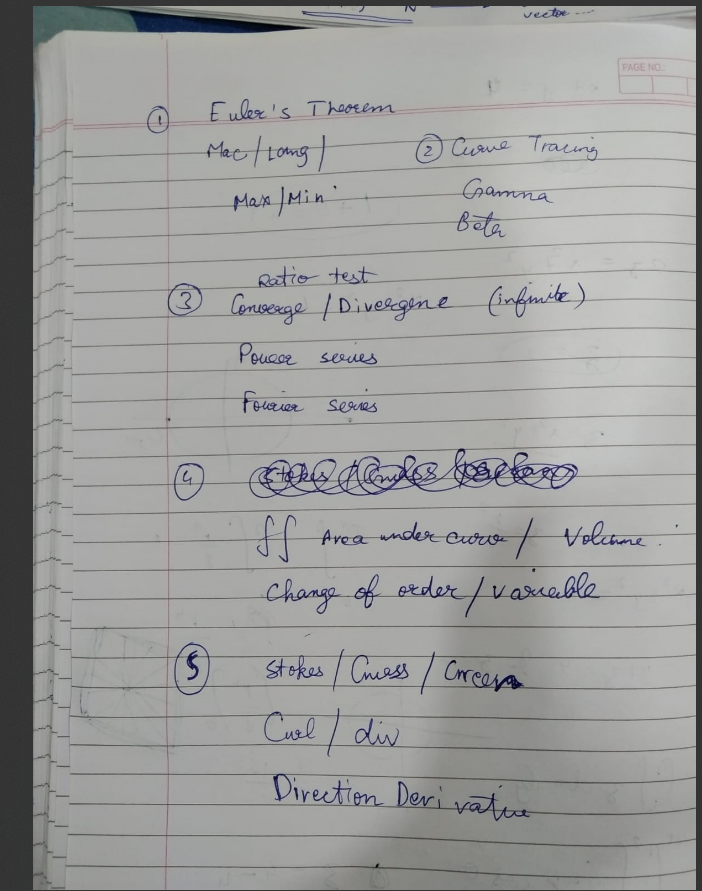 N
vector ....
PAGE NO.:
① Euler's Theorem
Mac / Lang /
② Curve Tracing
Max / Min
Gamma
Beta
Ratio test
③ Converge / Divergene (infinite)
Power series
Fourier series
④ Stokes /
∫∫ Area under curve / Volume
Change of order / variable
⑤ Stokes / Guess / Green
Curl / div
Direction Derivative